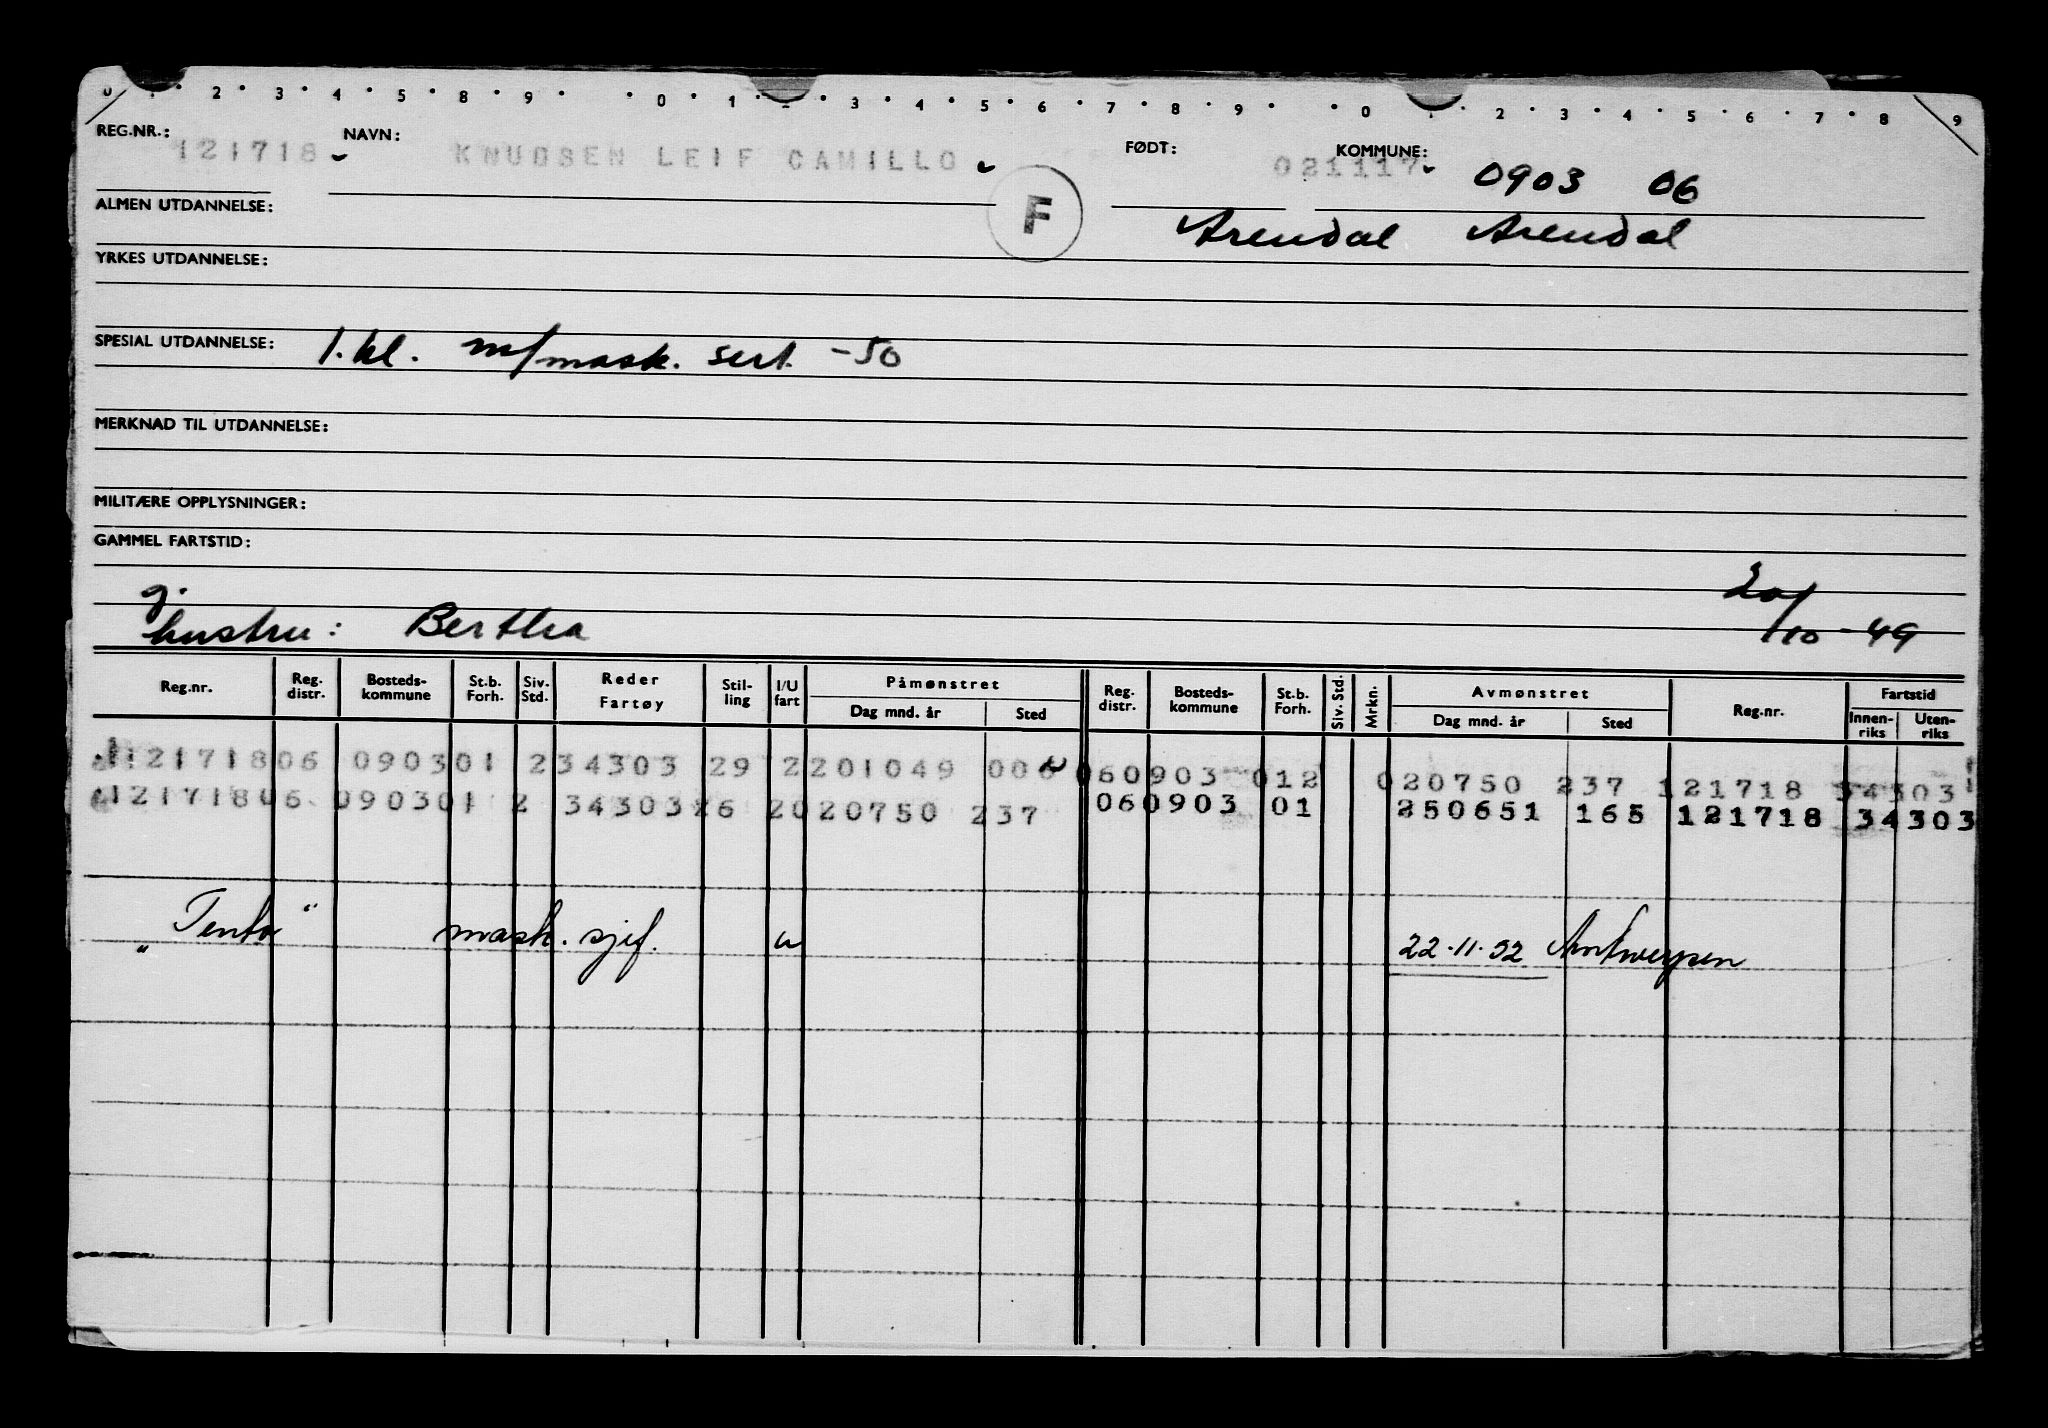 0 1 2 3 4 5 8 9 0 1 2 3 4 5 6 7 8 9 0 1 2 3 4 5 6 7 8 9
REG.NR.: 121718 NAVN: KNUDSEN LEIF CAMILLO FØDT: 021117 KOMMUNE: 0903 06
ALMEN UTDANNELSE: F Arendal Arendal
YRKES UTDANNELSE:
SPESIAL UTDANNELSE: 1. kl. m/mask. sert. -50
MERKNAD TIL UTDANNELSE:
MILITÆRE OPPLYSNINGER:
GAMMEL FARTSTID:
g. 20/10-49
hustru: Bertha
Reg.nr. Reg. distr. Bosteds-kommune St.b. Forh. Siv. Std. Reder Fartøy Stil-ling I/U fart Påmønstret Dag mnd. år Sted Reg. distr. Bosteds-kommune St.b. Forh. Siv. Std. Mrkn. Avmønstret Dag mnd. år Sted Reg.nr. Fartstid Innen-riks Uten-riks
121718 06 0903 01 2 34303 29 2 201049 006 06 0903 01 2 020750 237 121718 34303
121718 06 0903 01 2 34303 26 2 020750 237 06 0903 01 250651 165 121718 34303
mask. sjef. u 22.11.52 Antwerpen